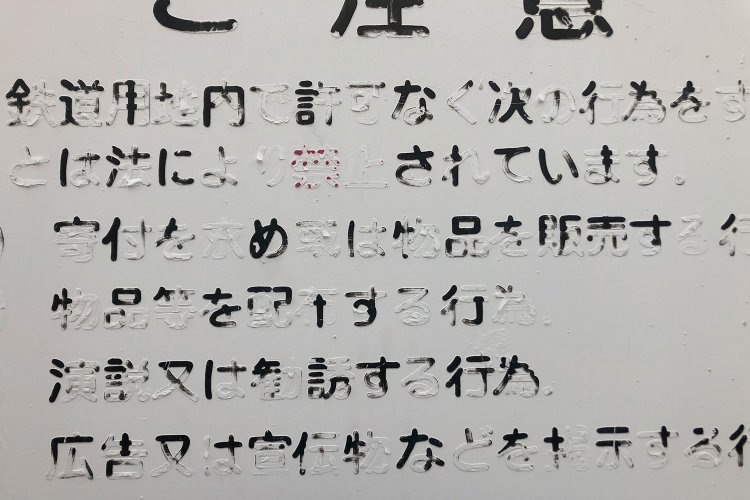 ご注意
鉄道用地内で許可なく次の行為をす
とは法により禁止されています。
寄付を求め又は物品を販売する行
物品等を配布する行為。
演説又は勧誘する行為。
広告又は宣伝物などを掲示する行